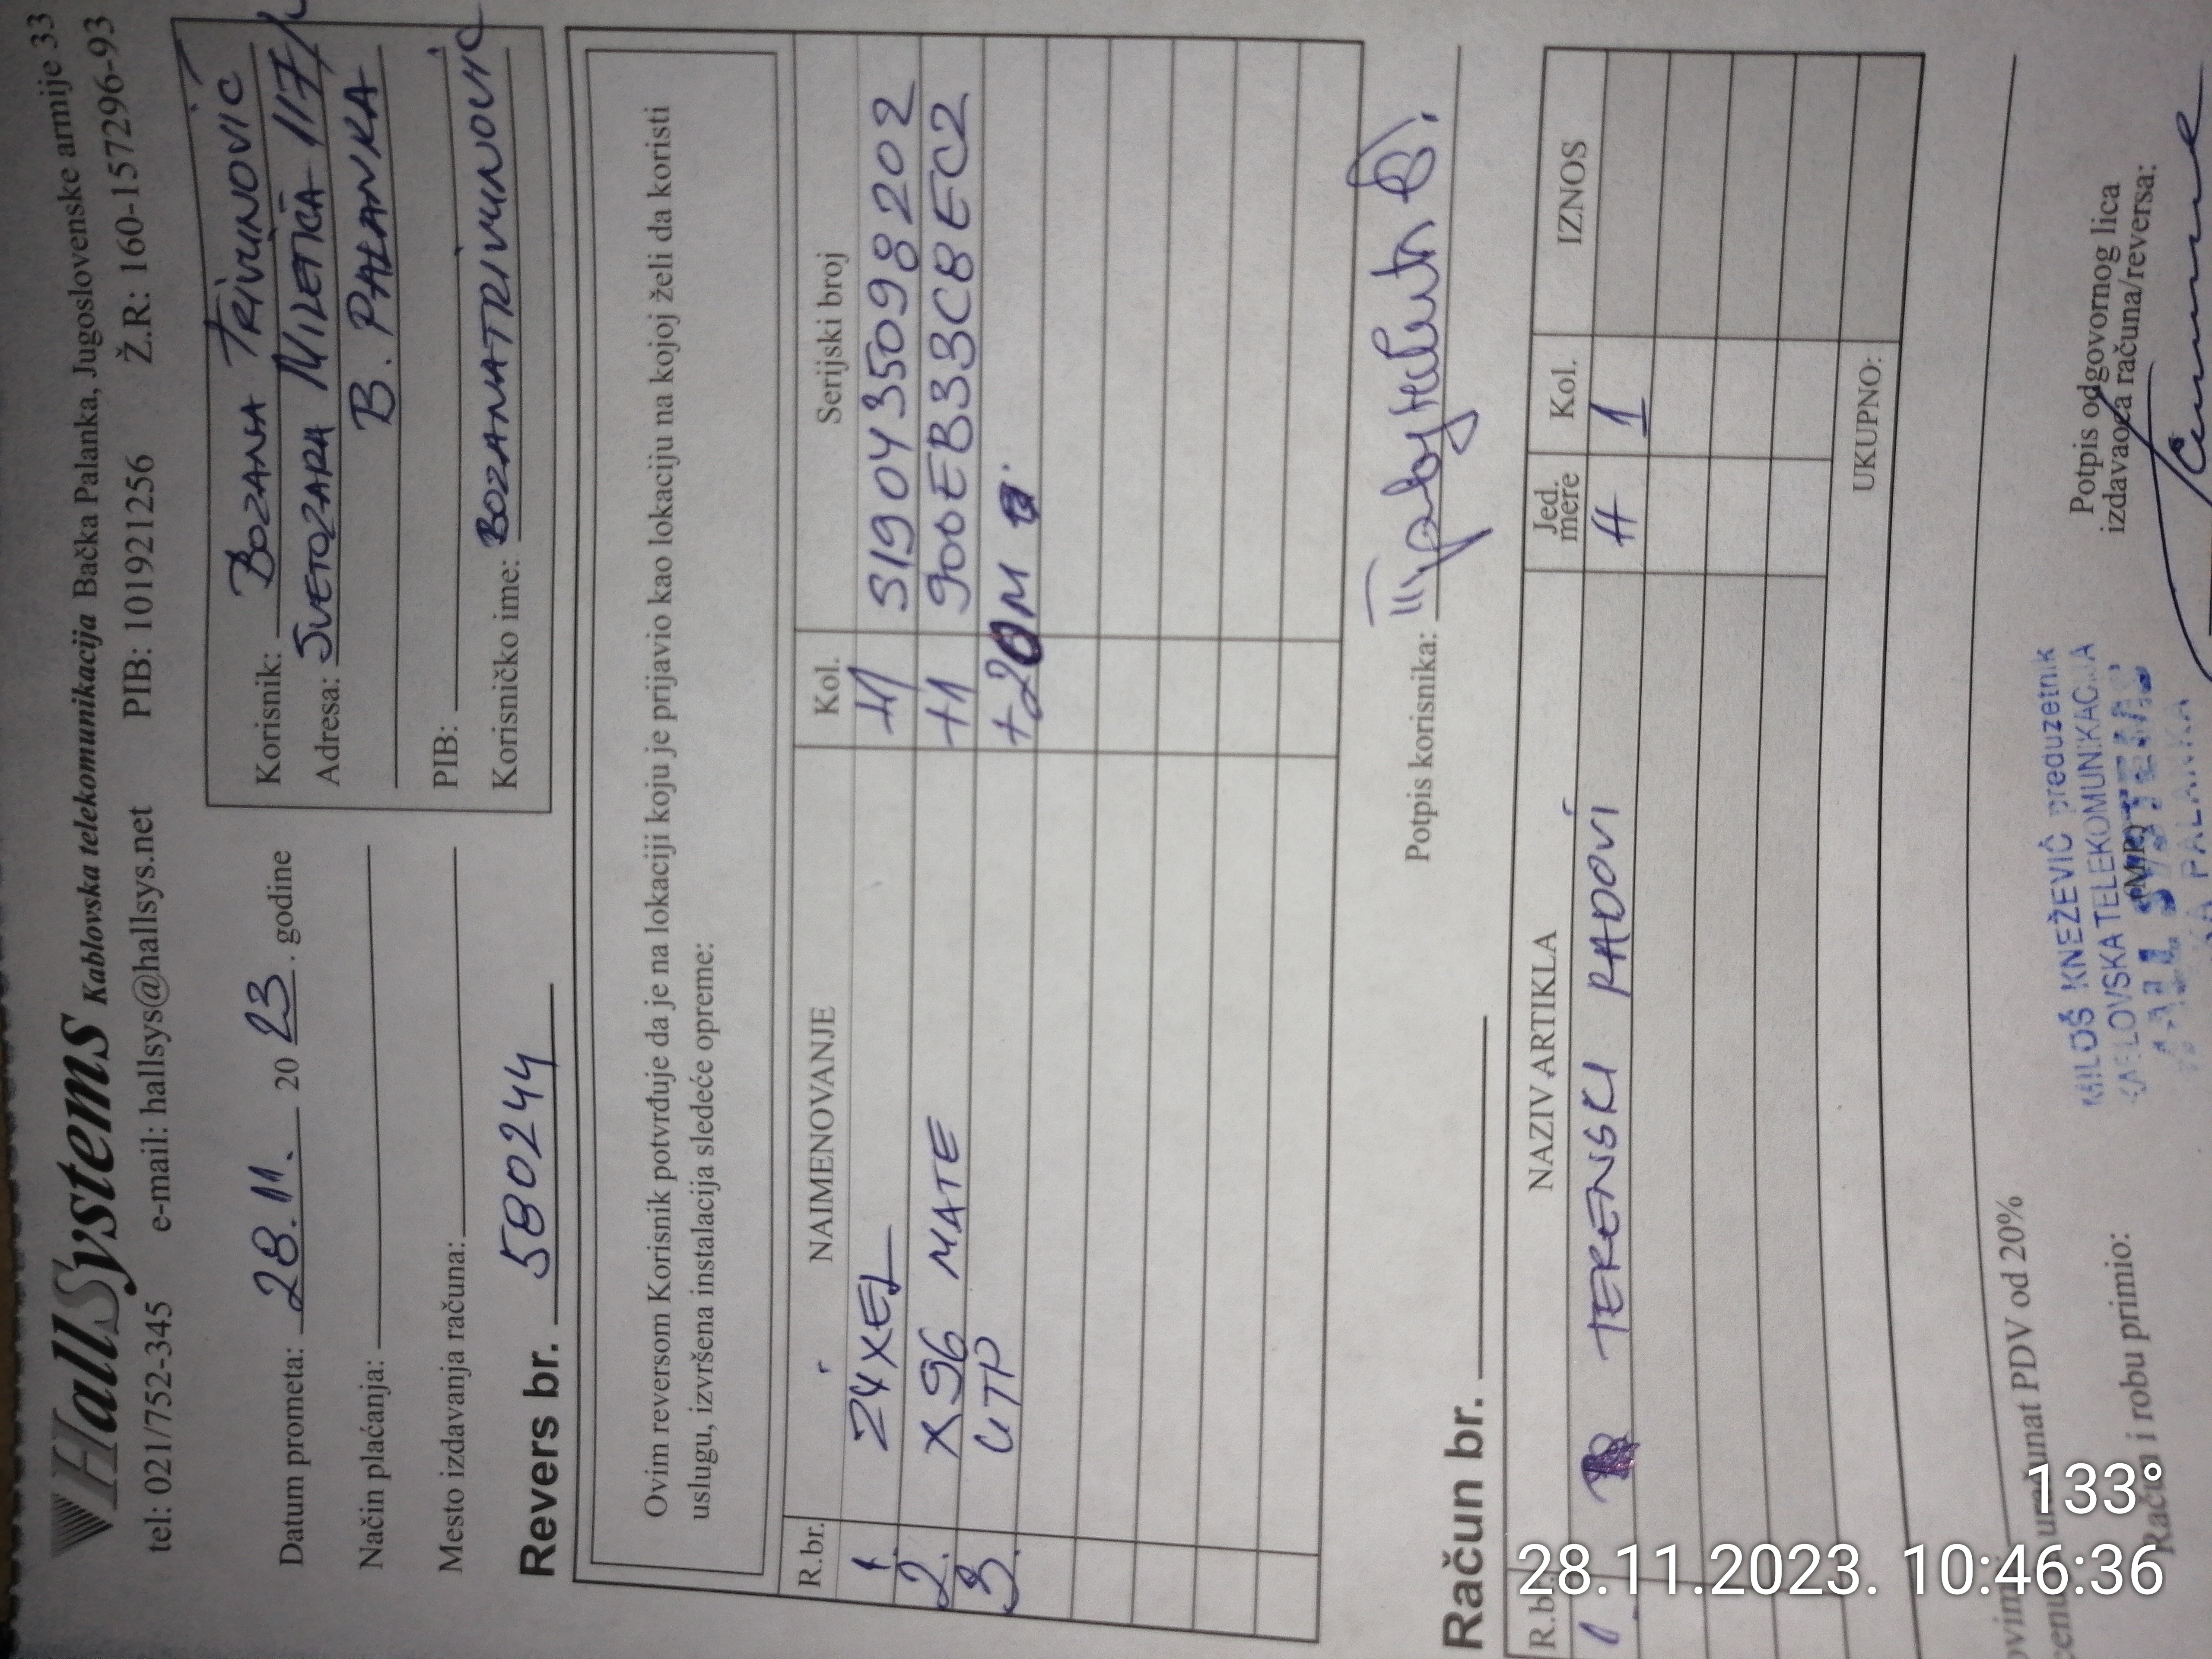 HallSystems Kablovska telekomunikacija Bačka Palanka, Jugoslovenske armije 33
tel: 021/752-345 e-mail: hallsys@hallsys.net PIB: 101921256 Ž.R: 160-157296-93
Datum prometa: 28.11. 20 23. godine
Način plaćanja:
Mesto izdavanja računa:
Korisnik: BOZANA TRIVUNOVIĆ
Adresa: SVETOZARA MILETIĆA 117/
B. PALANKA
PIB:
Korisničko ime: BOZANATRIVUNOVIC
Revers br. 580244
Ovim reversom Korisnik potvrđuje da je na lokaciji koju je prijavio kao lokaciju na kojoj želi da koristi
uslugu, izvršena instalacija sledeće opreme:
R.br. NAIMENOVANJE Kol. Serijski broj
1. ZYXEL +1 S190435098202
2. X96 MATE +1 900EB33CBEC2
3. UTP +20M
Potpis korisnika:
Račun br.
R.br. NAZIV ARTIKLA Jed. mere Kol. IZNOS
1. TERENSKI RADOVI H 1
UKUPNO:
PDV od 20%
Račun i robu primio:
MILOŠ KNEŽEVIĆ preduzetnik
KABLOVSKA TELEKOMUNIKACIJA
(MP)
PALANKA
Potpis odgovornog lica
izdavaoca računa/reversa:
133°
28.11.2023. 10:46:36